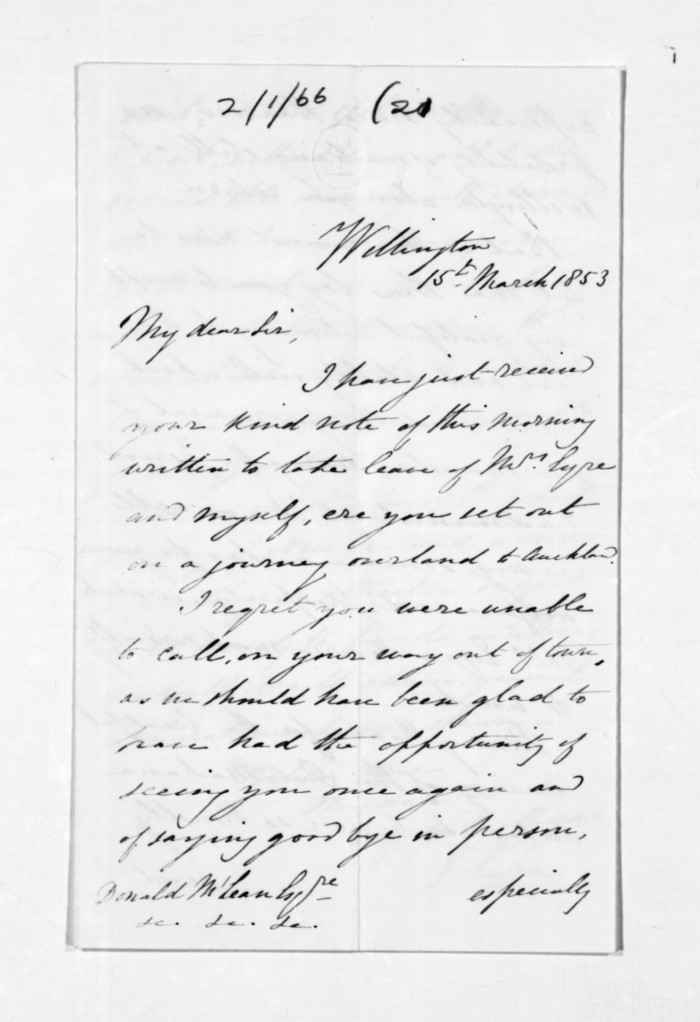 2/1/66 (20
Wellington
15th March 1853
My dear Sir,
I have just received
your kind note of this morning
written to take leave of Mrs. Eyre
and myself, ere you set out
on a journey overland to Auckland.
I regret you were unable
to call, on your way out of town,
as we should have been glad to
have had the opportunity of
seeing you once again and
of saying good bye in person,
Donald McLean Esqre especially
&c. &c. &c.